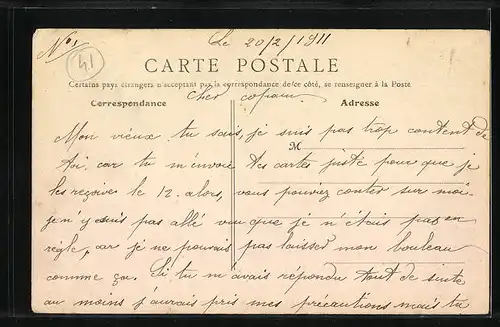 N° 1
Le 20/2/1911
41
CARTE POSTALE
Certains pays étrangers n'acceptant pas la correspondance de ce côté, se renseigner à la Poste
Correspondance
Adresse
Cher copain.
Mon vieux tu sais, je suis pas trop content de
M
toi, car tu m'envoie tes cartes juste pour que je
les reçoive le 12. alors, vous pouviez conter sur moi.
je n'y suis pas allé vu que je n'étais pas en
règle, car je ne pouvais pas laisser mon bouleau
comme ça. Si tu m'avais répondu tout de suite
au moins j'aurais pris mes précautions mais tu